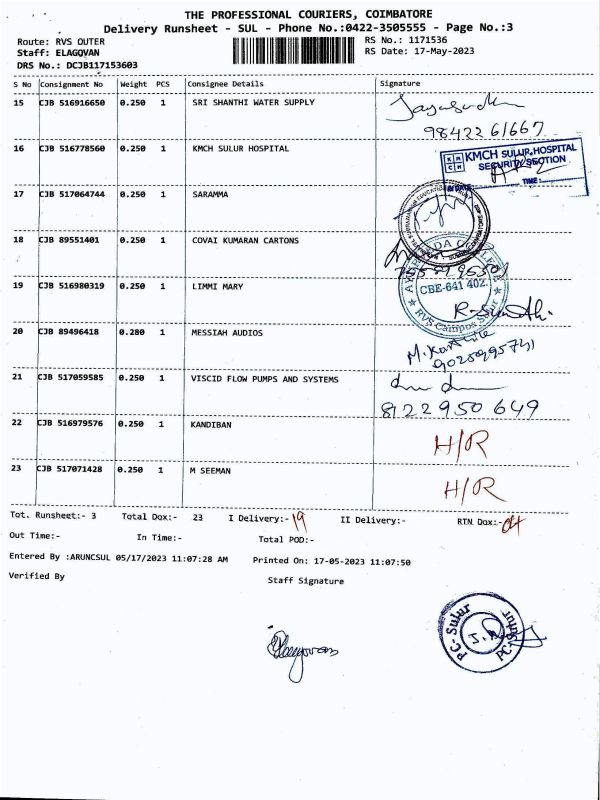 THE PROFESSIONAL COURIERS, COIMBATORE
Delivery Runsheet - SUL - Phone No.:0422-3505555 - Page No.:3
Route: RVS OUTER
RS No.: 1171536
Staff: ELAGOVAN
RS Date: 17-May-2023
DRS No.: DCJB117153603
S No Consignment No Weight PCS Consignee Details Signature
15 CJB 516916650 0.250 1 SRI SHANTHI WATER SUPPLY
98422 61667
16 CJB 516778560 0.250 1 KMCH SULUR HOSPITAL
KMCH SULUR HOSPITAL
SECURITY SECTION
TIME:
17 CJB 517064744 0.250 1 SARAMMA
18 CJB 89551401 0.250 1 COVAI KUMARAN CARTONS
19 CJB 516980319 0.250 1 LIMMI MARY
CBE-641 402.
RVS Campus Sulur
20 CJB 89496418 0.280 1 MESSIAH AUDIOS
21 CJB 517059585 0.250 1 VISCID FLOW PUMPS AND SYSTEMS
8122950649
22 CJB 516979576 0.250 1 KANDIBAN
H/R
23 CJB 517071428 0.250 1 M SEEMAN
H/R
Tot. Runsheet:- 3 Total Dox:- 23 I Delivery:- 19 II Delivery:- RTN Dox:- 04
Out Time:- In Time:- Total POD:-
Entered By :ARUNCSUL 05/17/2023 11:07:28 AM Printed On: 17-05-2023 11:07:50
Verified By Staff Signature
PC-Sulur
PC-Sulur
Elagovan